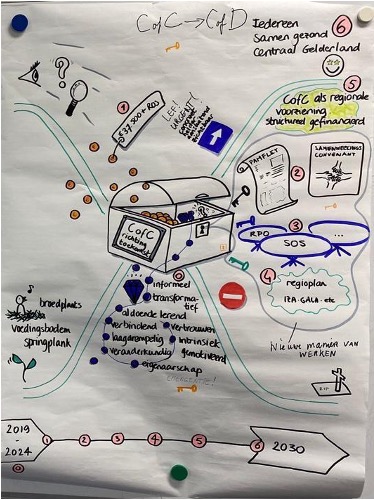 CofC → CofD
Iedereen
Samen gezond
Centraal Gelderland
6
5
CofC als regionale
voorziening
structureel gefinancierd
?
1
LEF!
URGENTIE
PAMFLET
2
SAMENWERKINGS
CONVENANT
3
RPO
SOS
...
4
regioplan
IZA-GALA-etc
Nieuwe manier van
WERKEN
CofC
richting
toekomst
0
informeel
transforma-
tief
aldoende lerend
verbindend
vertrouwen
laagdrempelig
intrinsiek
gemotiveerd
veranderkundig
eigenaarschap
broedplaats
voedingsbodem
springplank
2019
-
2024
0
1
2
3
4
5
6
2030